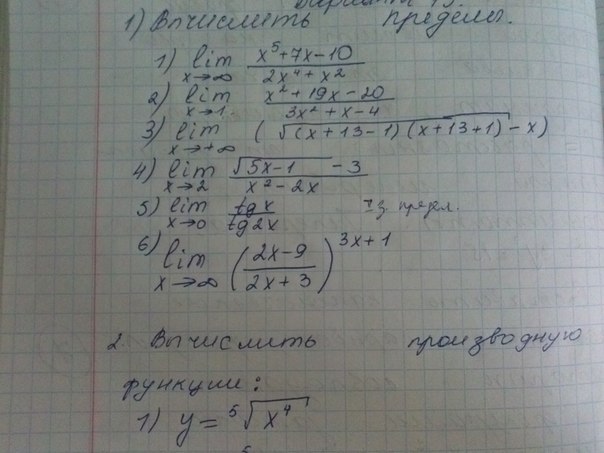 1) Вычислить пределы.
1) lim x→∞ (x⁵+7x-10)/(2x⁴+x²)
2) lim x→1 (x²+19x-20)/(3x²+x-4)
3) lim x→+∞ (√((x+13-1)(x+13+1))-x)
4) lim x→2 (√(5x-1)-3)/(x²-2x)
5) lim x→0 (tg x)/(tg 2x) предел.
6) lim x→∞ ((2x-9)/(2x+3))^(3x+1)
2. Вычислить производную
функции:
1) y = ⁵√(x⁴)